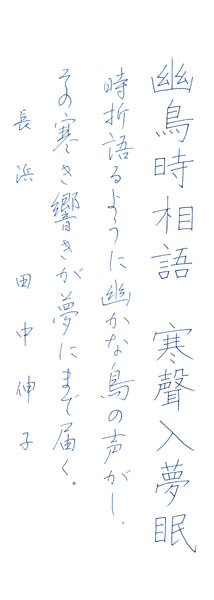 幽鳥時相語　寒聲入夢眠
時折語るように幽かな鳥の声がし、
その寒き響きが夢にまで届く。
長浜　田中伸子